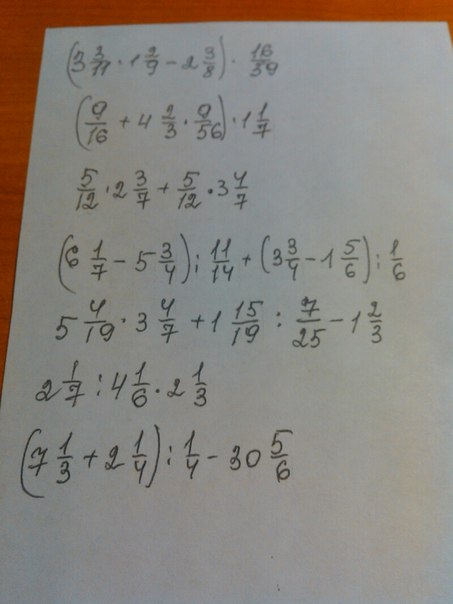 (5 3/11 · 1 2/9 - 2 3/8) · 16/39
(9/16 + 4 2/3 · 9/56) · 1 1/7
5/12 · 2 3/7 + 5/12 · 3 4/7
(6 1/7 - 5 3/4) : 11/14 + (3 3/4 - 1 5/6) : 1/6
5 4/19 · 3 4/7 + 1 15/19 : 7/25 - 1 2/3
2 1/7 : 4 1/6 · 2 1/3
(7 1/3 + 2 1/4) : 1/4 - 30 5/6